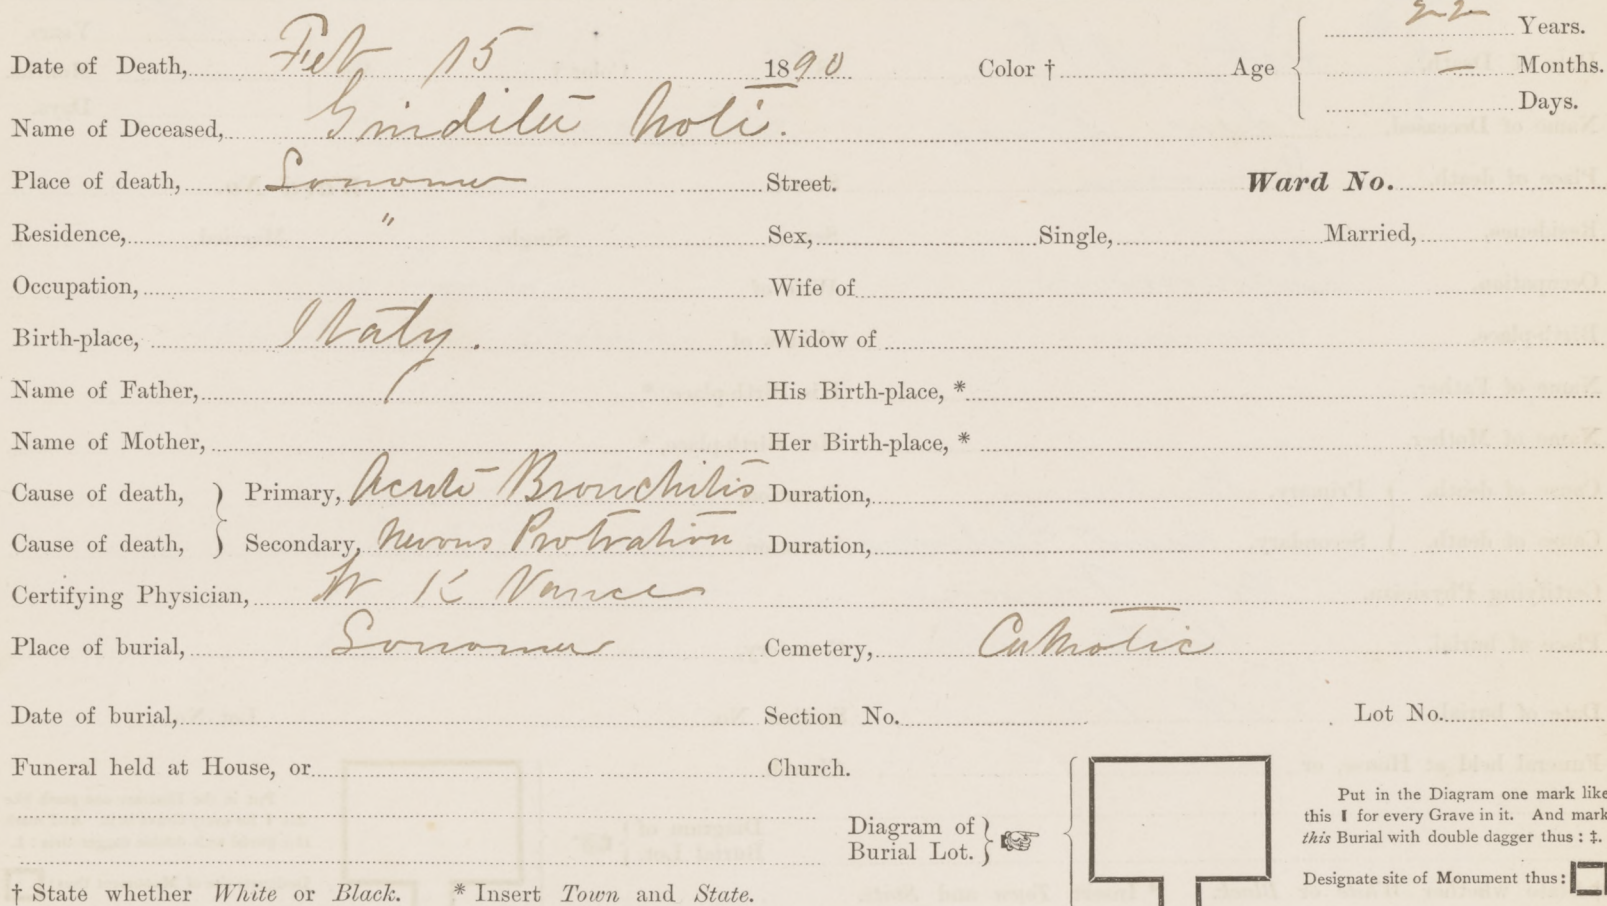 22 Years.
Date of Death, Feb 15 1890 Color † Age — Months.
Days.
Name of Deceased,
Place of death, Sonoma Street. Ward No.
Residence, " Sex, Single, Married,
Occupation, Wife of
Birth-place, Italy. Widow of
Name of Father, His Birth-place, *
Name of Mother, Her Birth-place, *
Cause of death, } Primary, Acute Bronchitis Duration,
Cause of death, } Secondary, Nervous Protration Duration,
Certifying Physician, W K Vance
Place of burial, Sonoma Cemetery, Catholic
Date of burial, Section No. Lot No.
Funeral held at House, or Church.
Diagram of
Burial Lot. }
Put in the Diagram one mark like
this I for every Grave in it. And mark
this Burial with double dagger thus : ‡.
Designate site of Monument thus:
† State whether White or Black. * Insert Town and State.